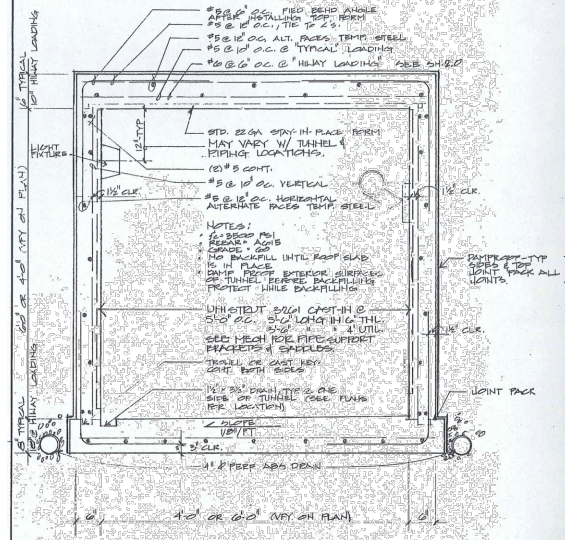 #5 @ 6" O.C. FIELD BEND ANGLE
AFTER INSTALLING TOP FORM
#5 @ 12" O.C., TIE TO L'S.
#5 @ 12" O.C. ALT. FACES TEMP. STEEL
#5 @ 10" O.C. @ "TYPICAL" LOADING
#6 @ 6" O.C. @ "HIWAY LOADING" SEE SH. 2.0
6" TYPICAL
10" HIWAY LOADING
STD. 22 GA STAY-IN-PLACE FORM
MAY VARY W/ TUNNEL &
PIPING LOCATIONS.
12" TYP
LIGHT
FIXTURE
(2) #5 CONT.
#5 @ 10" O.C. VERTICAL
1½" CLR.
1½" CLR.
#5 @ 12" O.C. HORIZONTAL
ALTERNATE FACES TEMP. STEEL
6'0" OR 4'-0" (VFY ON PLAN)
NOTES:
• fc=3500 PSI
• REBAR = A615
• GRADE = 60
• NO BACKFILL UNTIL ROOF SLAB
IS IN PLACE
• DAMP PROOF EXTERIOR SURFACES
OF TUNNEL BEFORE BACKFILLING
PROTECT WHILE BACKFILLING
DAMPROOF-TYP
SIDES & TOP
JOINT PACK ALL
JOINTS.
UNISTRUT 3261 CAST-IN @
5'-0" O.C. 5'-6" LONG IN 6' TNL.
3'-6" " " 4' UTIL.
SEE MECH FOR PIPE SUPPORT
BRACKETS & SADDLES.
1½" CLR.
TROWEL OR CAST KEY-
CONT. BOTH SIDES
1½" x 3½" DRAIN, TYP @ ONE
SIDE OF TUNNEL (SEE PLANS
FOR LOCATION)
JOINT PACK
8" TYPICAL
HIWAY LOADING
SLOPE
1/8"/FT.
3" CLR.
4" Ø PERF ABS DRAIN
6"
4'-0" OR 6'-0" (VFY ON PLAN)
6"